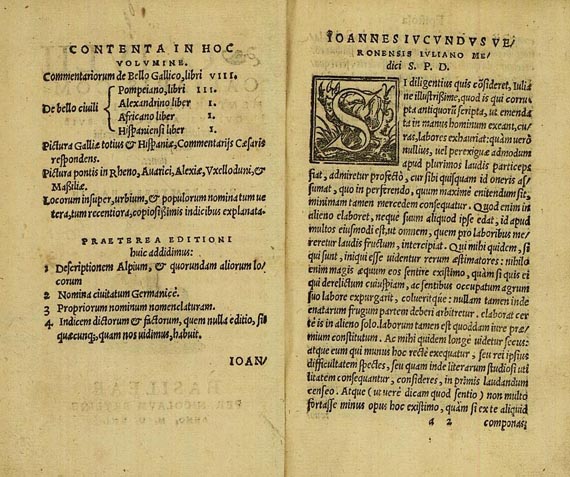 CONTENTA IN HOC
VOLVMINE.
Commentariorum de Bello Gallico, libri VIII.
De bello ciuili
Pompeiano, libri III.
Alexandrino liber I.
Africano liber I.
Hispaniensi liber I.
Pictura Galliæ totius & Hispaniæ, Commentarijs Cæsaris
respondens.
Pictura pontis in Rheno, Auarici, Alexiæ, Vxelloduni, &
Maßiliæ.
Locorum insuper, urbium, & populorum nomina tum ue
tera, tum recentiora, copiosißimis indicibus explanata.
PRAETEREA EDITIONI
huic addidimus:
1 Descriptionem Alpium, & quorundam aliorum lo/
corum
2 Nomina ciuitatum Germanicè.
3 Propriorum nominum nomenclaturam.
4 Indicem dictorum & factorum, quem nulla editio, sit
quæcunq;, quam nos uidimus, habuit.
IOAN/
IOANNES IVCVNDVS VE/
RONENSIS IVLIANO ME/
dici S. P. D.
SI diligentius quis cõsideret, Iulia
ne illustrißime, quod is qui corru
pta antiquorũ scripta, ut emenda
ta in manus hominum exeant, cu/
ras, labores exhauriat: quàm uerò
nullius, uel perexiguæ admodum
apud plurimos laudis particeps
fiat, admiretur profectò, cur sibi quisquam id oneris as/
sumat, quo in perferendo, quum maximè enitendum sit,
minimam tamen mercedem consequatur. Quod enim in
alieno elaboret, neque suum aliquod ipse edat, id apud
multos eiusmodi est, ut omnem, quem pro laboribus me/
reretur laudis fructum, intercipiat. Qui mihi quidem, si
qui sunt, iniqui esse uidentur rerum æstimatores: nihilo
enim magis æquum eos sentire existimo, quàm si quis ei
qui derelictum cuiuspiam, ac sentibus occupatum agrum
suo labore expurgarit, colueritque: nullam tamen inde
enatarum frugum partem deberi arbitretur. elaborat cer
tè is in alieno solo. laborum tamen est quoddam iure præ/
mium constitutum. Ac mihi quidem longè uidetur secus:
atque eum qui munus hoc rectè exequatur, seu rei ipsius
difficultatem spectes, seu quam inde literarum studiosi uti
litatem consequantur, consideres, in primis laudandum
censeo. Atque (ut uerè dicam quod sentio) non multo
fortasse minus opus hoc existimo, quàm si ex te aliquid
a 2 componas;